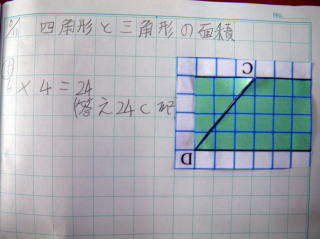 四角形と三角形の面積
6×4=24
(答え24c㎡
C
D